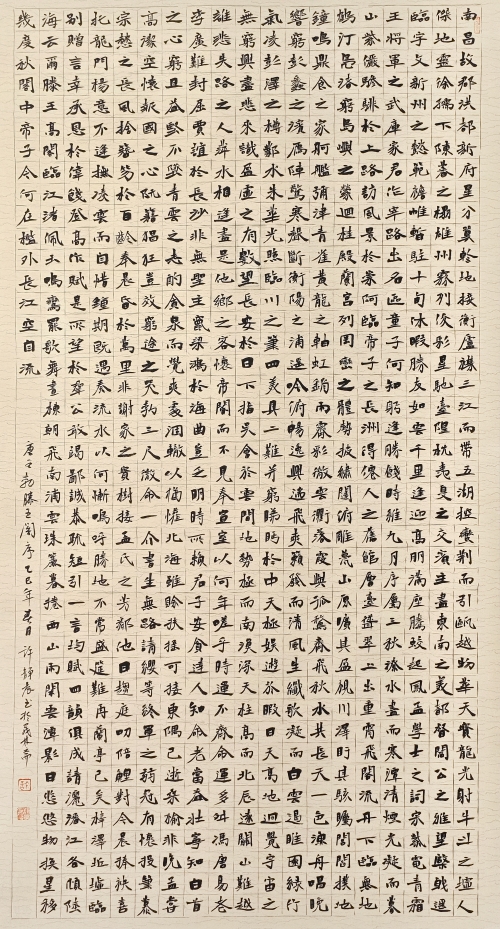 南昌故郡洪都新府星分翼軫地接衡廬襟三江而帶五湖控蠻荊而引甌越物華天寶龍光射斗牛之墟人
傑地靈徐孺下陳蕃之榻雄州霧列俊彩星馳臺隍枕夷夏之交賓主盡東南之美都督閻公之雅望棨戟遙
臨宇文新州之懿範襜帷暫駐十旬休暇勝友如雲千里逢迎高朋滿座騰蛟起鳳孟學士之詞宗紫電青霜
王將軍之武庫家君作宰路出名區童子何知躬逢勝餞時維九月序屬三秋潦水盡而寒潭清煙光凝而暮
山紫儼驂騑於上路訪風景於崇阿臨帝子之長洲得僊人之舊館層巒聳翠上出重霄飛閣流丹下臨無地
鶴汀鳧渚窮島嶼之縈迴桂殿蘭宮列岡巒之體勢披繡闥俯雕甍山原曠其盈視川澤盱其駭矚閭閻撲地
鐘鳴鼎食之家舸艦彌津青雀黃龍之軸虹銷雨霽彩徹雲衢落霞與孤鶩齊飛秋水共長天一色漁舟唱晚
響窮彭蠡之濱雁陣驚寒聲斷衡陽之浦遙吟俯暢逸興遄飛爽籟發而清風生纖歌凝而白雲遏睢園綠竹
氣凌彭澤之樽鄴水朱華光照臨川之筆四美具二難并窮睇眄於中天極娛遊於暇日天高地迥覺宇宙之
無窮興盡悲來識盈虛之有數望長安於日下指吳會於雲間地勢極而南溟深天柱高而北辰遠關山難越
誰悲失路之人萍水相逢盡是他鄉之客懷帝閽而不見奉宣室以何年嗟乎時運不齊命運多舛馮唐易老
李廣難封屈賈誼於長沙非無聖主竄梁鴻於海曲豈乏明時所賴君子安貧達人知命老當益壯寧知白首
之心窮且益堅不墜青雲之志酌貪泉而覺爽處涸轍以猶懽北海雖賒扶搖可接東隅已逝桑榆非晚孟嘗
高潔空懷報國之心阮籍猖狂豈效窮途之哭勃三尺微命一介書生無路請纓等終軍之弱冠有懷投筆慕
宗愨之長風捨簪笏於百齡奉晨昏於萬里非謝家之寶樹接孟氏之芳鄰他日趨庭叨陪鯉對今晨捧袂喜
託龍門楊意不逢撫凌雲而自惜鍾期既遇奏流水以何慚嗚呼勝地不常盛筵難再蘭亭已矣梓澤丘墟臨
別贈言幸承恩於偉餞登高作賦是所望於群公敢竭鄙誠恭疏短引一言均賦四韻俱成請灑潘江各傾陸
海云爾滕王高閣臨江渚佩玉鳴鸞罷歌舞畫棟朝飛南浦雲珠簾暮捲西山雨閒雲潭影日悠悠物換星移
幾度秋閣中帝子今何在檻外長江空自流
唐王勃滕王閣序乙巳年春日許靜